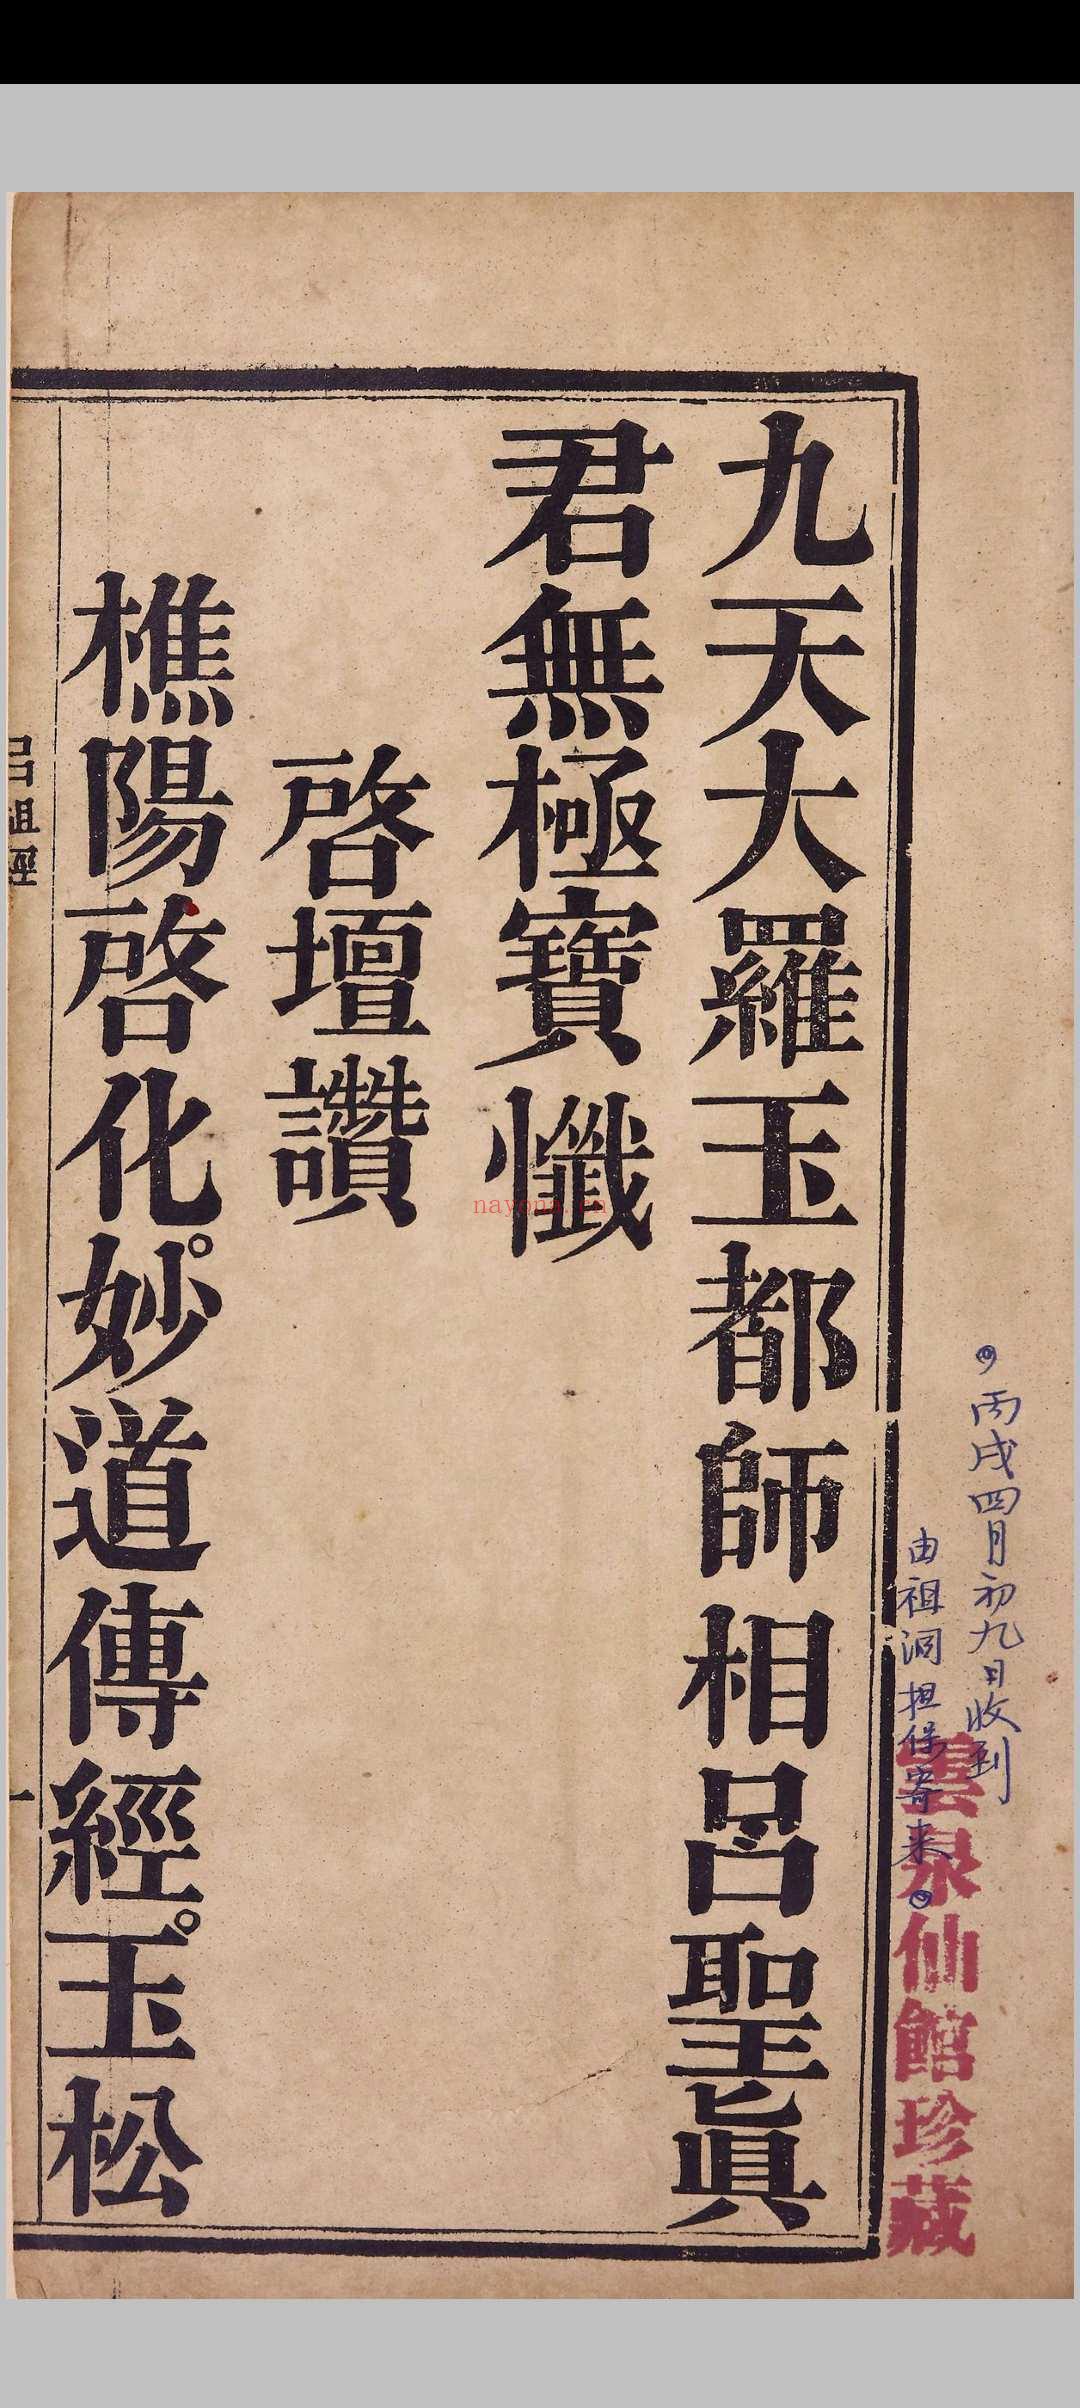 丙戌四月初九日收到
由祖洞担保寄来
雲泉仙館珍藏
九天大羅玉都師相呂聖眞
君無極寶懺
啓壇讚
樵陽啓化。妙道傳經。玉松
呂祖經
一
nayona.cn